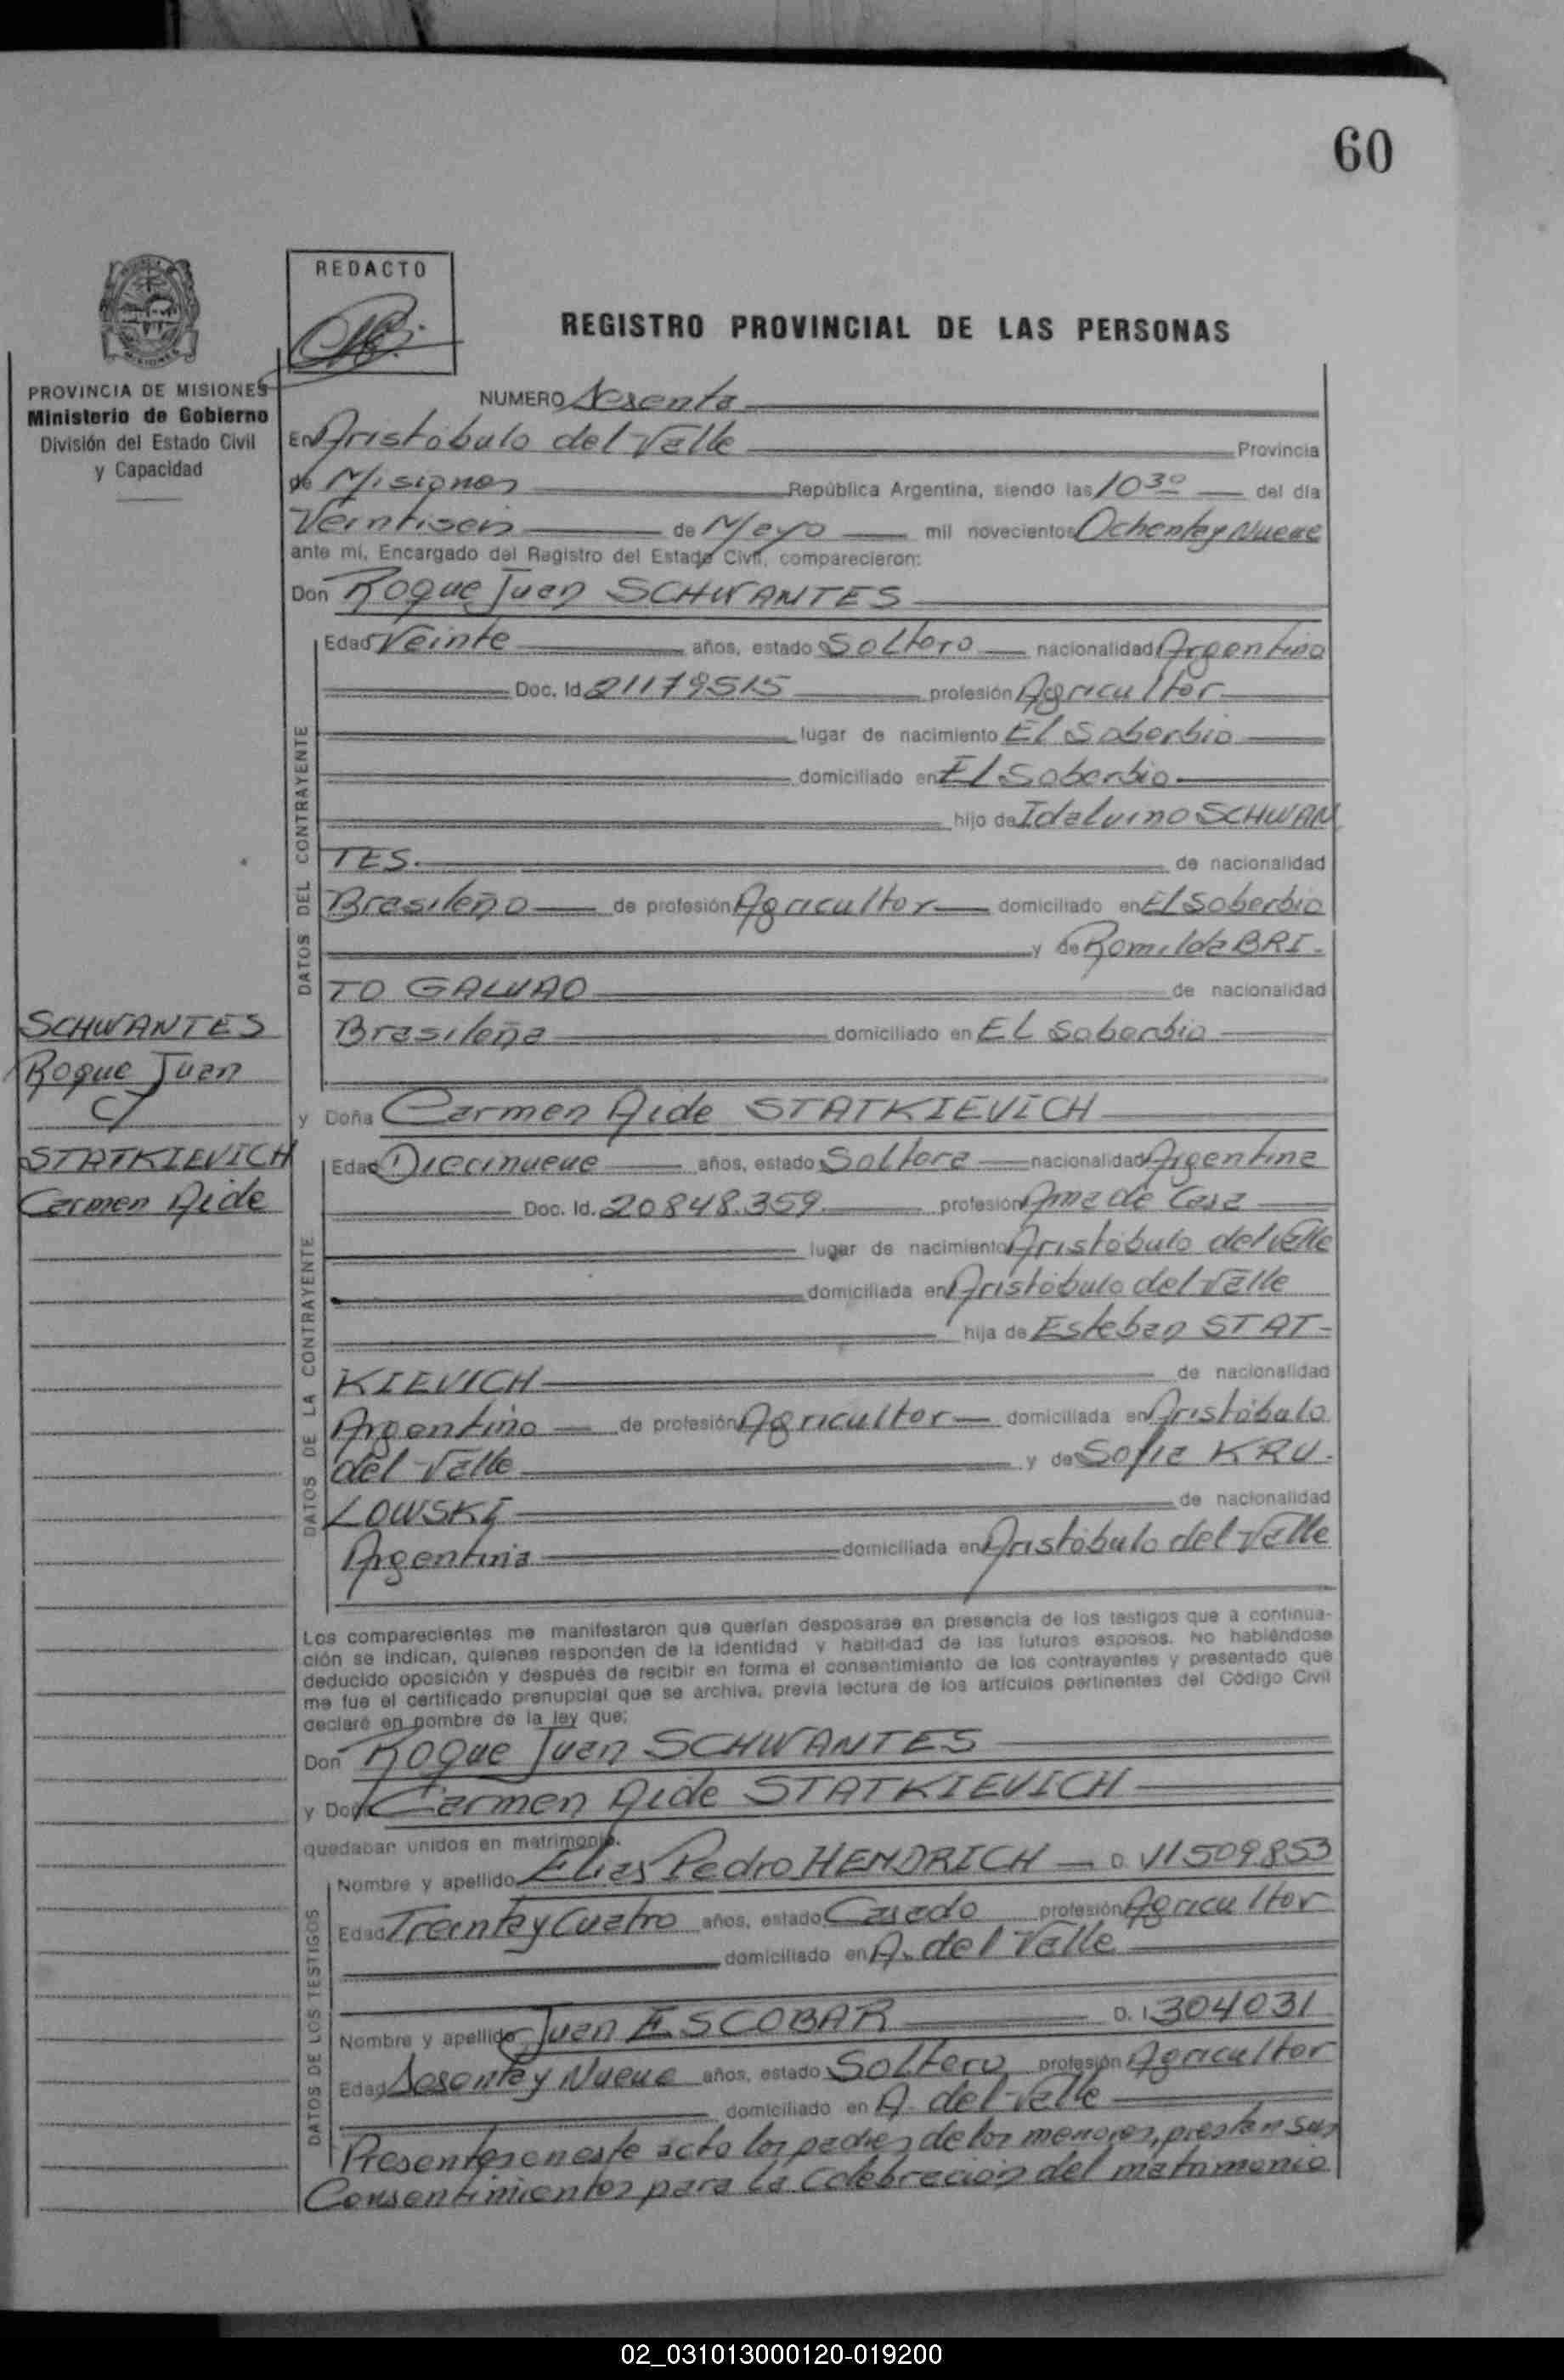 60
REDACTO
REGISTRO PROVINCIAL DE LAS PERSONAS
PROVINCIA DE MISIONES
Ministerio de Gobierno
División del Estado Civil
y Capacidad
NUMERO Sesenta
En Aristóbulo del Valle Provincia
de Misiones República Argentina, siendo las 10 30 del día
Veintiseis de Mayo mil novecientos Ochenta y Nueve
ante mí, Encargado del Registro del Estado Civil, comparecieron:
Don Roque Juan SCHWANTES
DATOS DEL CONTRAYENTE
Edad Veinte años, estado Soltero nacionalidad Argentino
Doc. Id 21179515 profesión Agricultor
lugar de nacimiento El Soberbio
domiciliado en El Soberbio
hijo de Idalvino SCHWAN
TES. de nacionalidad
Brasileño de profesión Agricultor domiciliado en El Soberbio
y de Romilda BRI-
TO GALVAO de nacionalidad
Brasileña domiciliado en El Soberbio
SCHWANTES
Roque Juan
C/
STATKIEVICH
Carmen Aide
y Doña Carmen Aide STATKIEVICH
DATOS DE LA CONTRAYENTE
Edad Diecinueve años, estado Soltera nacionalidad Argentina
Doc. Id. 20848.359 profesión Ama de Casa
lugar de nacimiento Aristóbulo del Valle
domiciliada en Aristóbulo del Valle
hija de Esteban STAT-
KIEVICH de nacionalidad
Argentino de profesión Agricultor domiciliada en Aristóbulo
del Valle y de Sofia KRU-
LOWSKI de nacionalidad
Argentina domiciliada en Aristóbulo del Valle
Los comparecientes me manifestaron que querían desposarse en presencia de los testigos que a continua-
ción se indican, quienes responden de la identidad y habilidad de los futuros esposos. No habiéndose
deducido oposición y después de recibir en forma el consentimiento de los contrayentes y presentado que
me fue el certificado prenupcial que se archiva, previa lectura de los artículos pertinentes del Código Civil
declaré en nombre de la ley que:
Don Roque Juan SCHWANTES
y Doña Carmen Aide STATKIEVICH
quedaban unidos en matrimonio.
DATOS DE LOS TESTIGOS
Nombre y apellido Elias Pedro HENDRICH D. I 11509.853
Edad Treinta y Cuatro años, estado Casado profesión Agricultor
domiciliado en A. del Valle
Nombre y apellido Juan ESCOBAR D. I. 304031
Edad Sesenta y Nueve años, estado Soltero profesión Agricultor
domiciliado en A. del Valle
Presentes en este acto los padres de los menores, prestan sus
Consentimientos para la Celebración del matrimonio
02_031013000120-019200